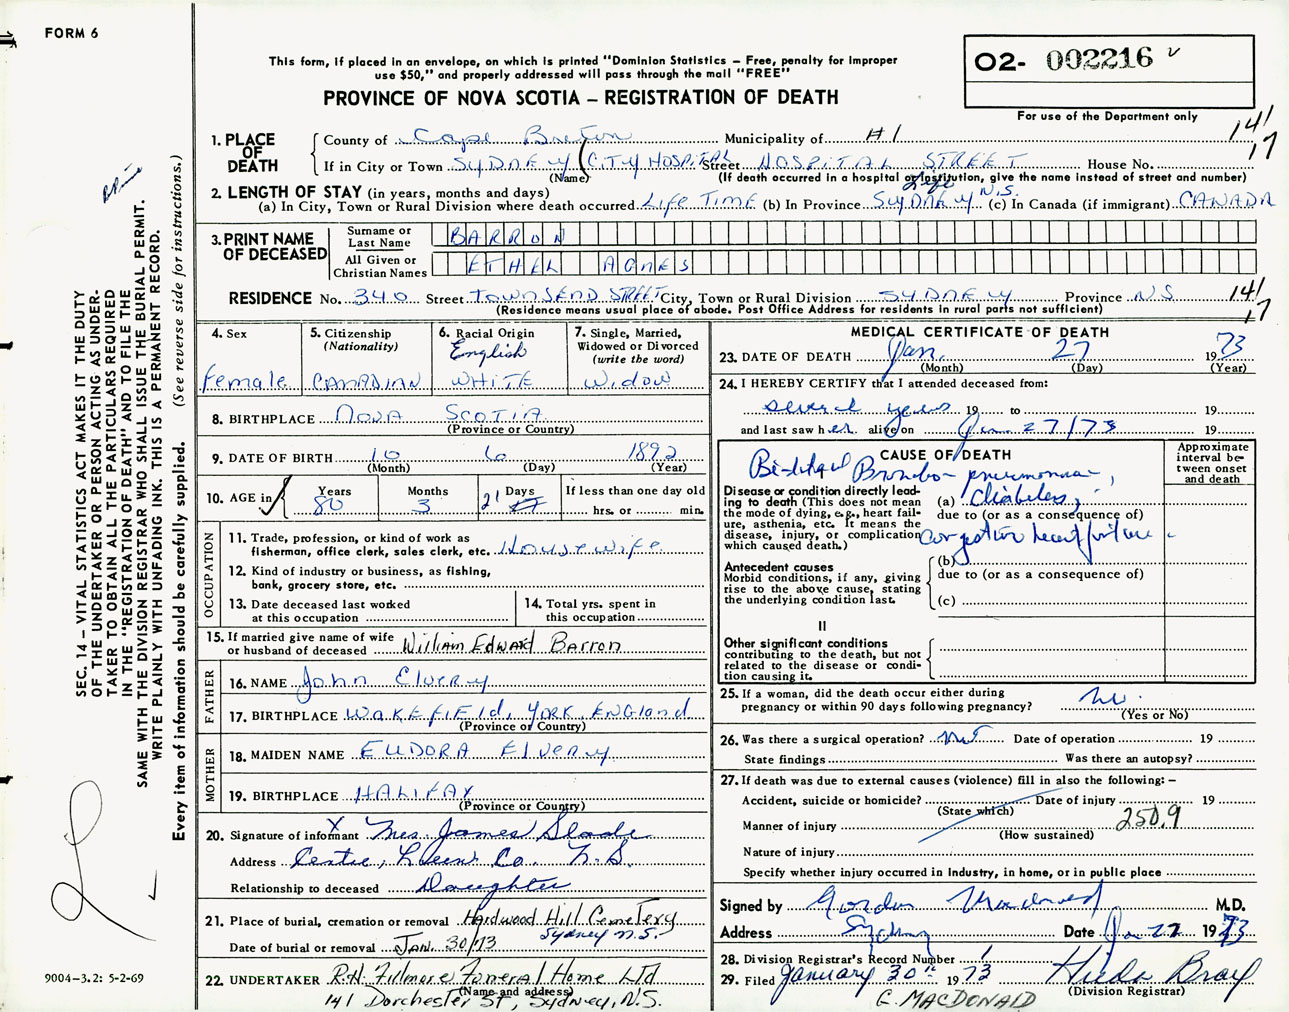 FORM 6
This form, if placed in an envelope, on which is printed "Dominion Statistics – Free, penalty for improper
use $50," and properly addressed will pass through the mail "FREE"
PROVINCE OF NOVA SCOTIA – REGISTRATION OF DEATH
02- 002216
For use of the Department only
141
17
1. PLACE OF DEATH
County of Cape Breton Municipality of #1
If in City or Town SYDNEY (CITY HOSPITAL Street HOSPITAL STREET House No.
(Name) (If death occurred in a hospital or institution, give the name instead of street and number)
2. LENGTH OF STAY (in years, months and days) Life N.S.
(a) In City, Town or Rural Division where death occurred LIFE TIME (b) In Province SYDNEY (c) In Canada (if immigrant) CANADA
3. PRINT NAME OF DECEASED
Surname or Last Name BARRON
All Given or Christian Names ETHEL AGNES
RESIDENCE No. 340 Street TOWNSEND STREET City, Town or Rural Division SYDNEY Province N.S. 141
(Residence means usual place of abode. Post Office Address for residents in rural parts not sufficient) 17
4. Sex
Female
5. Citizenship
(Nationality)
CANADIAN
6. Racial Origin
English
WHITE
7. Single, Married,
Widowed or Divorced
(write the word)
WIDOW
8. BIRTHPLACE NOVA SCOTIA
(Province or Country)
9. DATE OF BIRTH 10 6 1892
(Month) (Day) (Year)
10. AGE in Years Months Days If less than one day old
80 3 21 hrs. or min.
OCCUPATION
11. Trade, profession, or kind of work as
fisherman, office clerk, sales clerk, etc. Housewife
12. Kind of industry or business, as fishing,
bank, grocery store, etc.
13. Date deceased last worked
at this occupation
14. Total yrs. spent in
this occupation
15. If married give name of wife
or husband of deceased William Edward Barron
FATHER
16. NAME John Elvery
17. BIRTHPLACE WAKEFIELD, YORK, ENGLAND
(Province or Country)
MOTHER
18. MAIDEN NAME EUDORA Elvery
19. BIRTHPLACE HALIFAX
(Province or Country)
20. Signature of informant X Mrs. James Slade
Address Centre, Co. N.S.
Relationship to deceased Daughter
21. Place of burial, cremation or removal Hardwood Hill Cemetery
Sydney N.S.
Date of burial or removal JAN. 30/73
22. UNDERTAKER R.H. Fillmore Funeral Home Ltd
(Name and address)
141 Dorchester St, Sydney, N.S.
MEDICAL CERTIFICATE OF DEATH
23. DATE OF DEATH Jan. 27 1973
(Month) (Day) (Year)
24. I HEREBY CERTIFY that I attended deceased from:
several years 19 to 19
and last saw her alive on Jan 27/73 19
CAUSE OF DEATH
Approximate
interval be-
tween onset
and death
Broncho-pneumonia,
Disease or condition directly lead-
ing to death (This does not mean
the mode of dying, e.g., heart fail-
ure, asthenia, etc. It means the
disease, injury, or complication
which caused death.)
(a) diabetes,
due to (or as a consequence of)
congestive heart failure
(b)
due to (or as a consequence of)
(c)
Antecedent causes
Morbid conditions, if any, giving
rise to the above cause, stating
the underlying condition last.
II
Other significant conditions
contributing to the death, but not
related to the disease or condi-
tion causing it.
25. If a woman, did the death occur either during
pregnancy or within 90 days following pregnancy? no.
(Yes or No)
26. Was there a surgical operation? Date of operation 19
State findings Was there an autopsy?
27. If death was due to external causes (violence) fill in also the following:–
Accident, suicide or homicide? Date of injury 19
(State which)
Manner of injury 250.9
(How sustained)
Nature of injury
Specify whether injury occurred in industry, in home, or in public place
Signed by Gordon M.D.
Address Sydney Date Jan 27 1973
28. Division Registrar's Record Number 1
29. Filed January 30th 1973 Hilda Bray
(Division Registrar)
G. MACDONALD
SEC. 14 – VITAL STATISTICS ACT MAKES IT THE DUTY
OF THE UNDERTAKER OR PERSON ACTING AS UNDER-
TAKER TO OBTAIN ALL THE PARTICULARS REQUIRED
IN THE "REGISTRATION OF DEATH" AND TO FILE THE
SAME WITH THE DIVISION REGISTRAR WHO SHALL ISSUE THE BURIAL PERMIT.
WRITE PLAINLY WITH UNFADING INK. THIS IS A PERMANENT RECORD.
Every item of information should be carefully supplied. (See reverse side for instructions.)
9004-3.2: 5-2-69